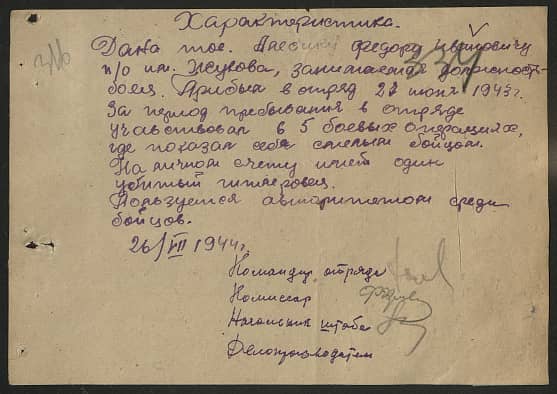 Характеристика.
Дана тов. Федору Ивановичу
п/о им. Жукова, занимаемая должность
боец. Прибыл в отряд 27 июня 1943 г.
За период пребывания в отряде
участвовал в 5 боевых операциях,
где показал себя смелым бойцом.
На личном счету имеет один
убитый гитлеровец.
Пользуется авторитетом среди
бойцов.
26/VII 1944 г.
Командир отряда
Комиссар
Начальник штаба
Делопроизводитель
334